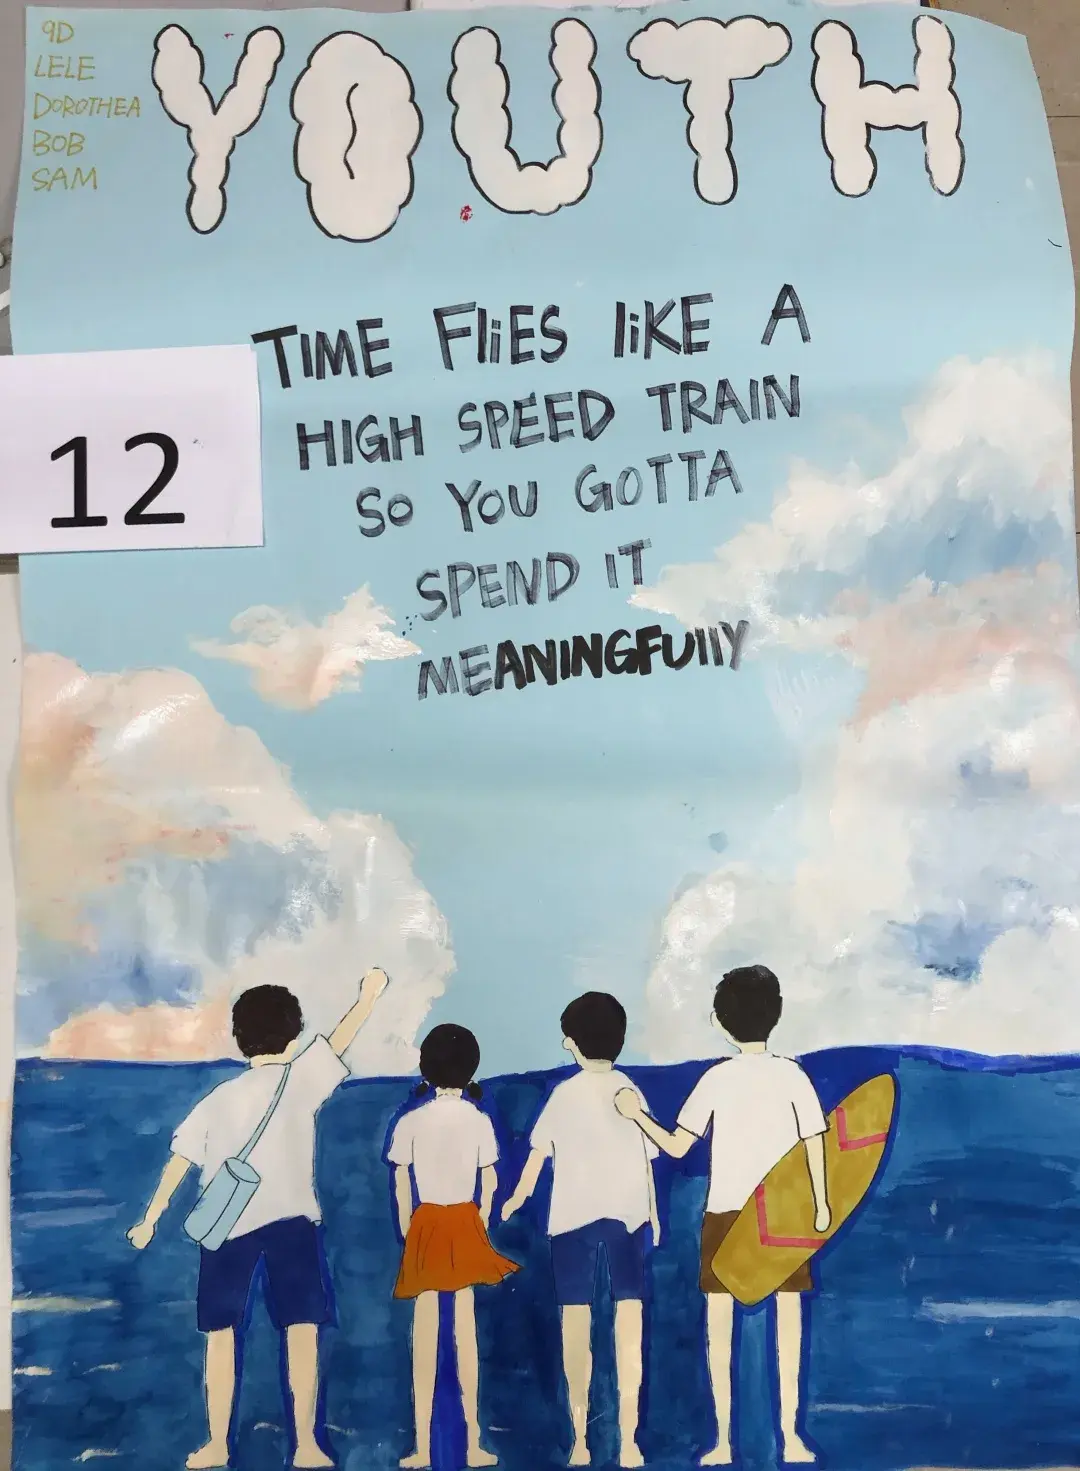 9D
LELE
DOROTHEA
BOB
SAM
YOUTH
TIME FliES liKE A
HIGH SPEED TRAIN
So YOU GOTTA
SPEND IT
MEANINGFUllY
12